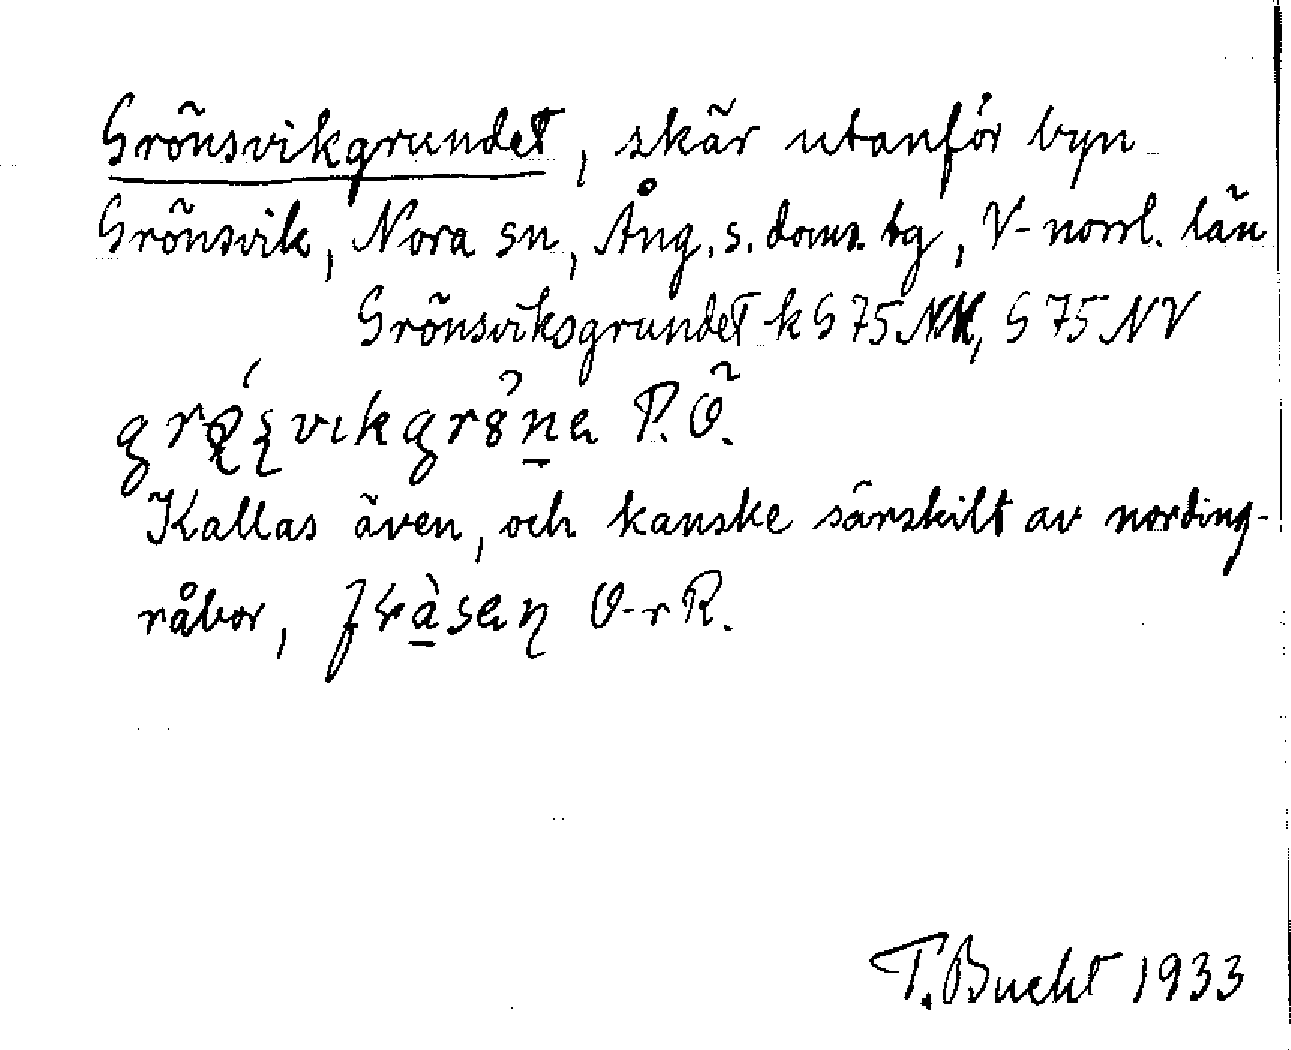 Grönsvikgrundet, skär utanför byn
Grönsvik, Nora sn, Ång. s. doms. tg, V-norrl. län
Grönsviksgrundet -k G 75 NV
P. Ö.
Kallas även, och kanske särskilt av nording-
råbor, O-r R.
T. Bucht 1933